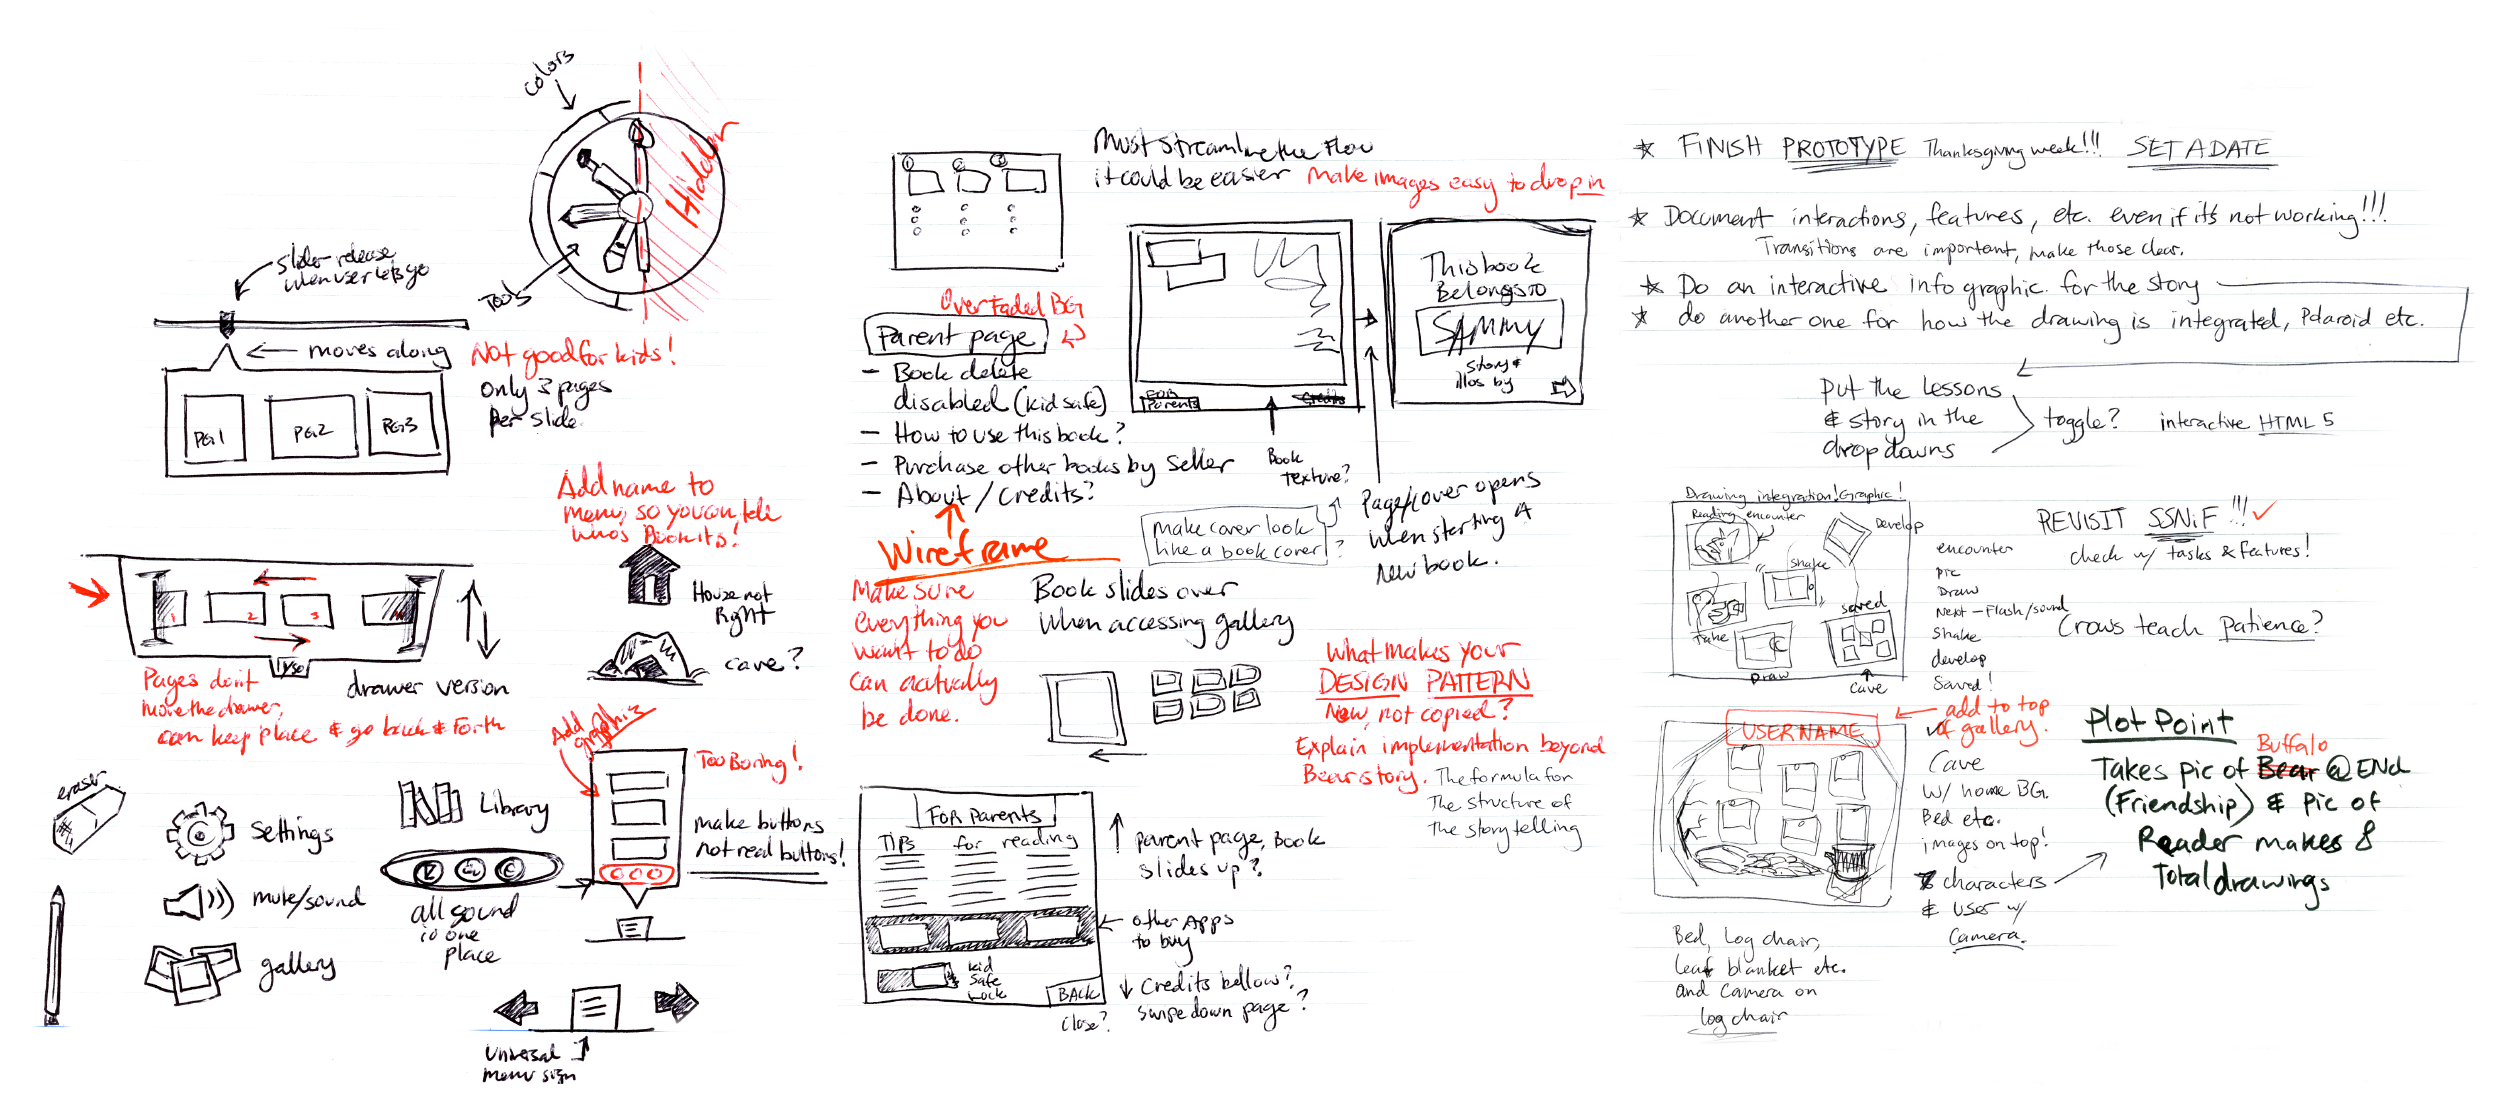 Colors
Hidden
Tools
Slider release
when user lets go
moves along
Not good for kids!
only 3 pages
per slide.
PG1
PG2
PG3
Add name to
menu, so you can tell
who's Book it is!
House not
Right
cave?
1
2
3
drawer version
Pages don't
move the drawer,
can keep place & go back & forth
Add
graphic
Too Boring!
make buttons
not real buttons!
eraser
settings
mute/sound
gallery
Library
all sound
in one
place
universal
menu sign
Must streamline the Flow
it could be easier
make images easy to drop in
1
2
3
Over Faded BG
Parent page
- Book delete
disabled (kid safe)
- How to use this book?
- Purchase other books by seller
- About/Credits?
Wireframe
Make sure
everything you
want to do
can actually
be done.
FOR
Parents
Credits
Book
Texture?
This book
Belongs to
SAMMY
Story &
illos by
make cover look
like a book cover
?
Page/cover opens
when starting a
New book.
Book slides over
when accessing gallery
What makes your
DESIGN PATTERN
New, not copied?
Explain implementation beyond
Bear story.
The formula for
The structure of
The story telling
FOR Parents
TIPS for reading
kid
Safe
Lock
BACK
close?
parent page, Book
slides up?
other Apps
to buy
Credits bellow?
swipe down page?
* FINISH PROTOTYPE Thanksgiving week!!! SET A DATE
* Document interactions, features, etc. even if it's not working!!!
Transitions are important, make those clear.
* Do an interactive info graphic for the story
* do another one for how the drawing is integrated, Polaroid etc.
put the lessons
& story in the
drop downs
toggle?
interactive HTML 5
Drawing integration! Graphic!
Reading encounter
Develop
Shake
Take
Draw
saved
cave
REVISIT SSNiF !!!
check w/ tasks & features!
encounter
pic
Draw
Next - Flash/sound
Shake
develop
Saved!
Crows teach patience?
USER NAME
add to top
of gallery.
Cave
w/ home BG.
Bed etc.
images on top!
7 characters
& user w/
camera.
Bed, Log chair,
leaf blanket etc.
and camera on
log chair
Plot Point
Buffalo
Takes pic of Bear @ END
(Friendship) & pic of
Reader makes 8
Total drawings